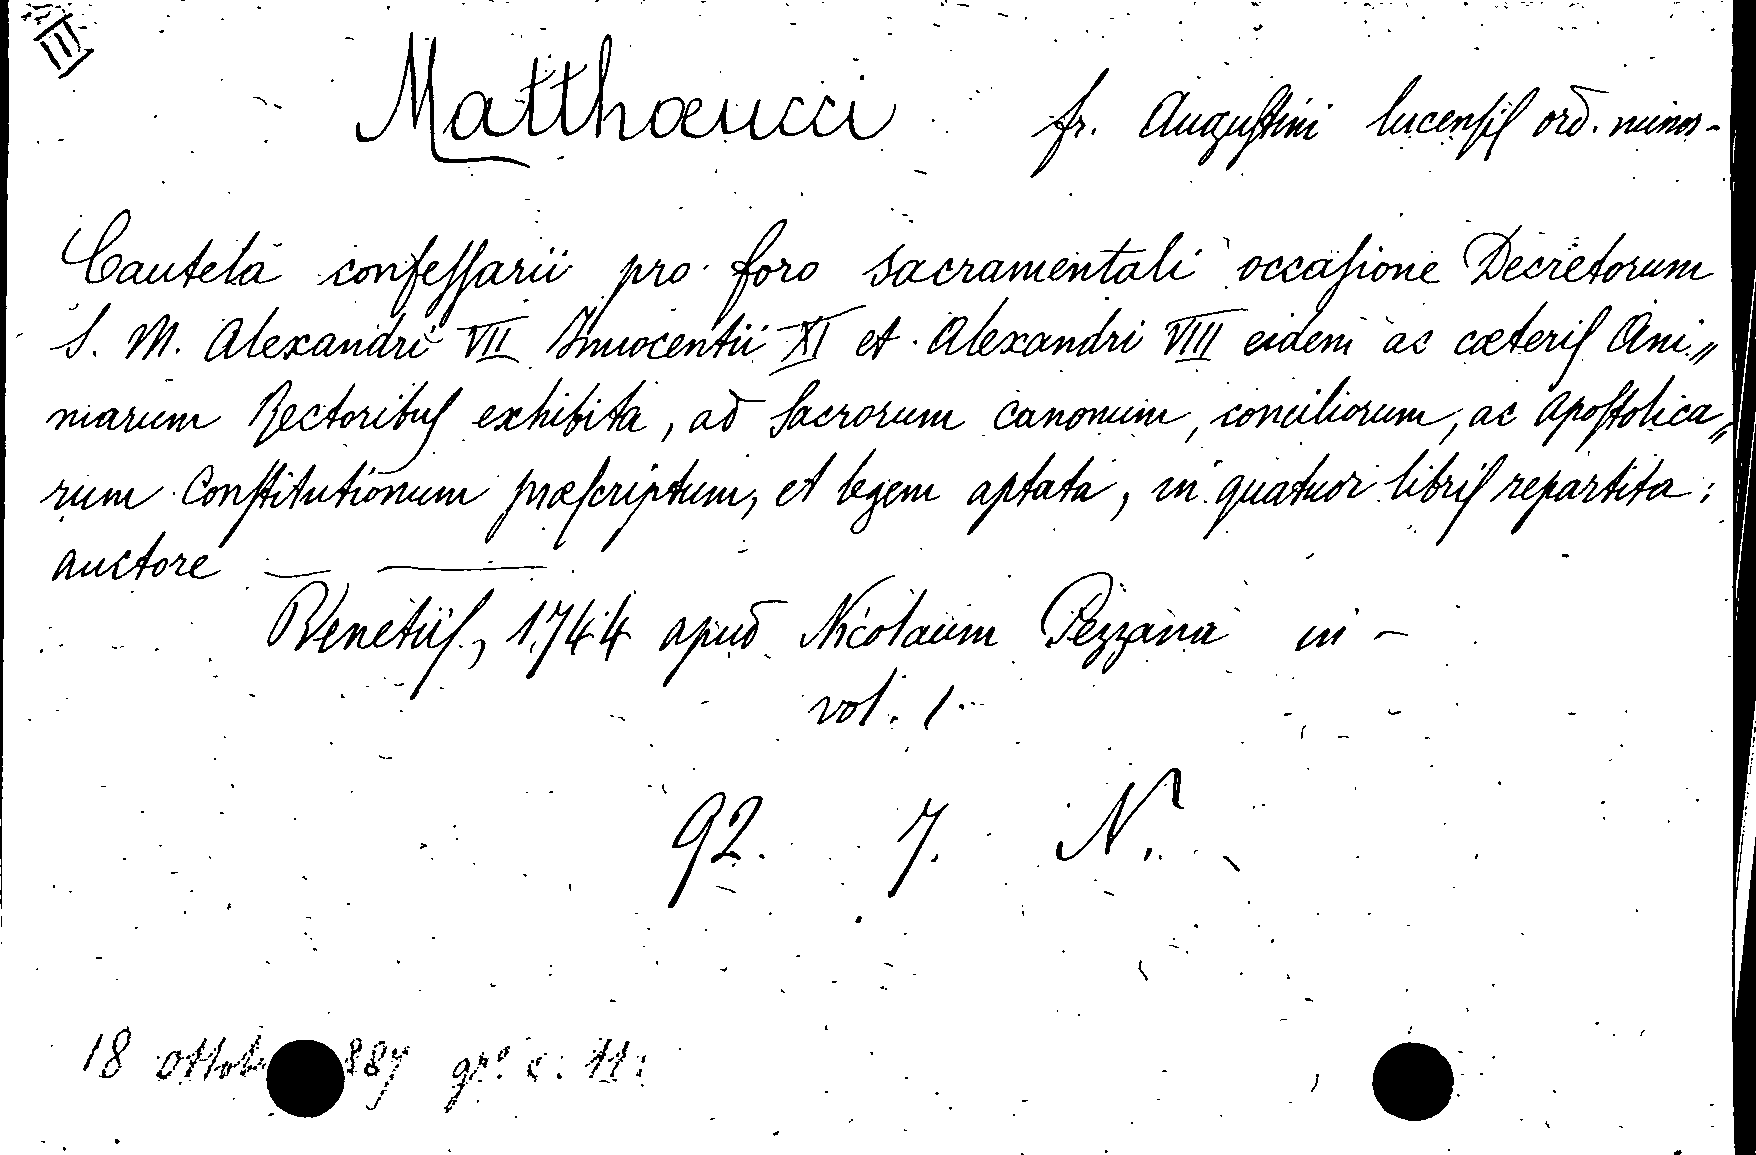 III
Matthæucci fr. Augustini lucensis ord. minor-
Cautela confessarii pro foro sacramentali occasione Decretorum
S. M. Alexandri VII Innocentii XI et Alexandri VIII eidem ac cæteris Ani„
marum Rectoribus exhibita, ad Sacrorum Canonum, conciliorum, ac apostolica„
rum Constitutionum præscriptum, et legem aptata, in quatuor libris repartita:
auctore — ——
Venetiis, 1744 apud Nicolaum Pezzana in -
vol. 1.
92. 7. N.
18 ottob 887 gr.º c. 11: